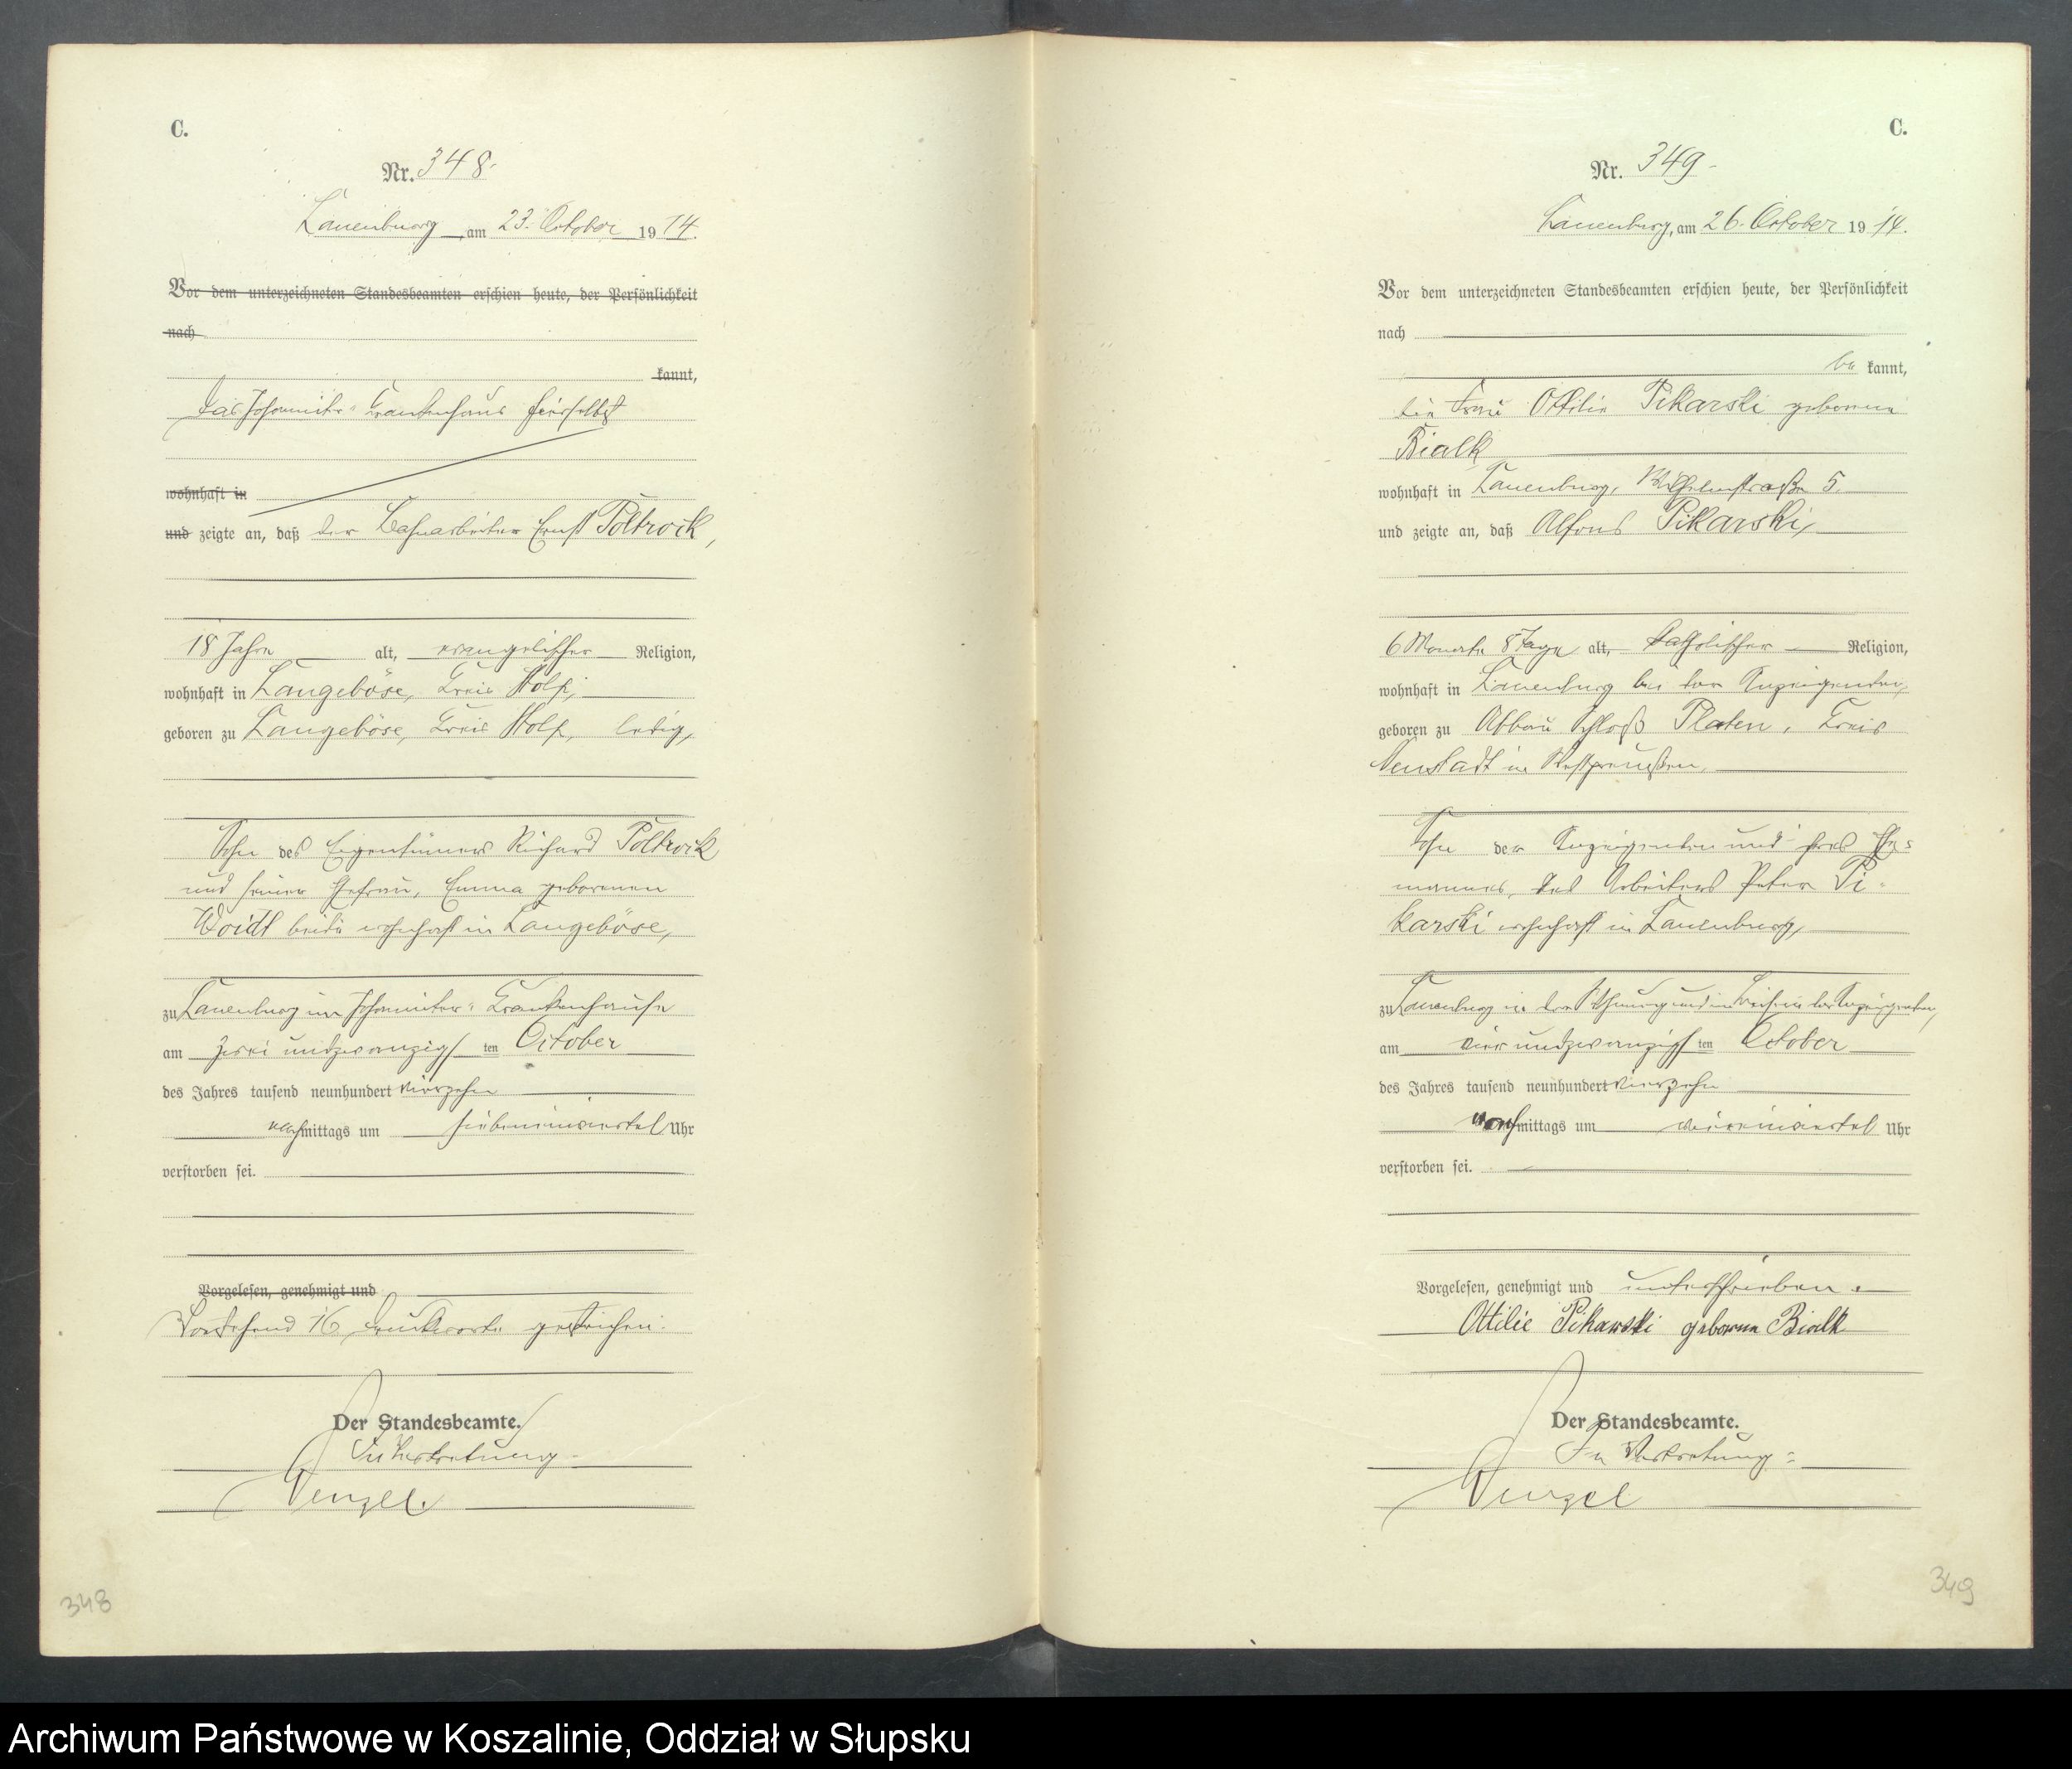 C.
Nr. 348.
Lauenburg, am 23. October 1914.
Vor dem unterzeichneten Standesbeamten erschien heute, der Persönlichkeit
nach
kannt,
das Johanniter-Krankenhaus hierselbst
wohnhaft in
und zeigte an, daß der Bahnarbeiter Ernst Poltrock,
18 Jahre alt, evangelischer Religion,
wohnhaft in Langeböse, Kreis Stolp,
geboren zu Langeböse, Kreis Stolp, ledig,
Sohn des Eigentümers Richard Poltrock
und seiner Ehefrau, Emma geborenen
Woidt beide wohnhaft in Langeböse,
zu Lauenburg im Johanniter-Krankenhause
am zwei und zwanzigsten October
des Jahres tausend neunhundert vierzehn
nachmittags um siebeneinviertel Uhr
verstorben sei.
Vorgelesen, genehmigt und
Vorstehend 16 Druckworte gestrichen.
Der Standesbeamte.
In Vertretung.
Wenzel.
348
C.
Nr. 349.
Lauenburg, am 26. October 1914.
Vor dem unterzeichneten Standesbeamten erschien heute, der Persönlichkeit
nach
be kannt,
die Frau Ottilie Pikarski geborene
Bialk
wohnhaft in Lauenburg, Wilhelmstraße 5.
und zeigte an, daß Alfons Pikarski,
6 Monate 8 Tage alt, katholischer Religion,
wohnhaft in Lauenburg bei der Anzeigenden,
geboren zu Abbau Schloß Platen, Kreis
Neustadt in Westpreußen,
Sohn der Anzeigenden und ihres Ehe-
mannes, des Arbeiters Peter Pi-
karski wohnhaft in Lauenburg,
zu Lauenburg in der Wohnung und im Beisein der Anzeigenden,
am vier und zwanzigsten October
des Jahres tausend neunhundert vierzehn
nachmittags um viereinviertel Uhr
verstorben sei.
Vorgelesen, genehmigt und unterschrieben.
Ottilie Pikarski geborene Bialk
Der Standesbeamte.
In Vertretung:
Wenzel
349
Archiwum Państwowe w Koszalinie, Oddział w Słupsku